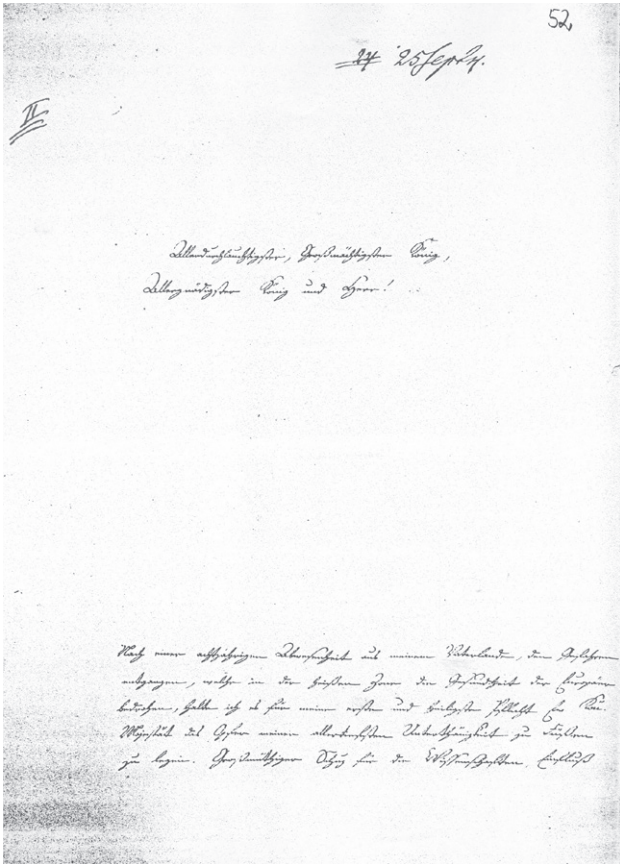 52
24 25 Septr.
II
Allerdurchlauchtigster, Großmächtigster König,
Allergnädigster König und Herr!
Nach einer achtjährigen Abwesenheit aus meinem Vaterlande, den Gefahren
entgangen, welche in der heißen Zone die Gesundheit der Europäer
bedrohen, halte ich es für meine erste und heiligste Pflicht Ew Kön.
Majestät das Opfer meiner allertiefsten Unterthänigkeit zu Füßen
zu legen. Großmüthiger Schutz für die Wissenschaften, Einfluß